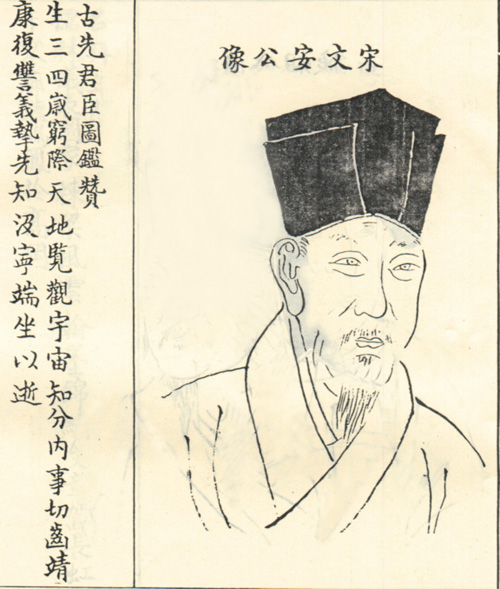 宋文安公像
古先君臣圖鑑贊
生三四嵗窮際天地覧觀宇宙知分内事切齒靖
康復讐義摯先知沒寧端坐以逝